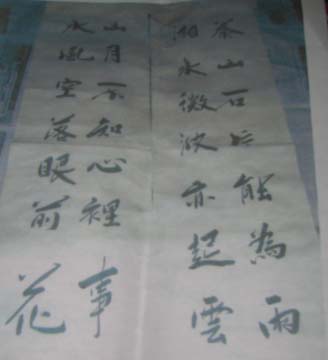 茶山石片能為雨
湖水微波亦起雲
山月不知心裡事
水風空落眼前花